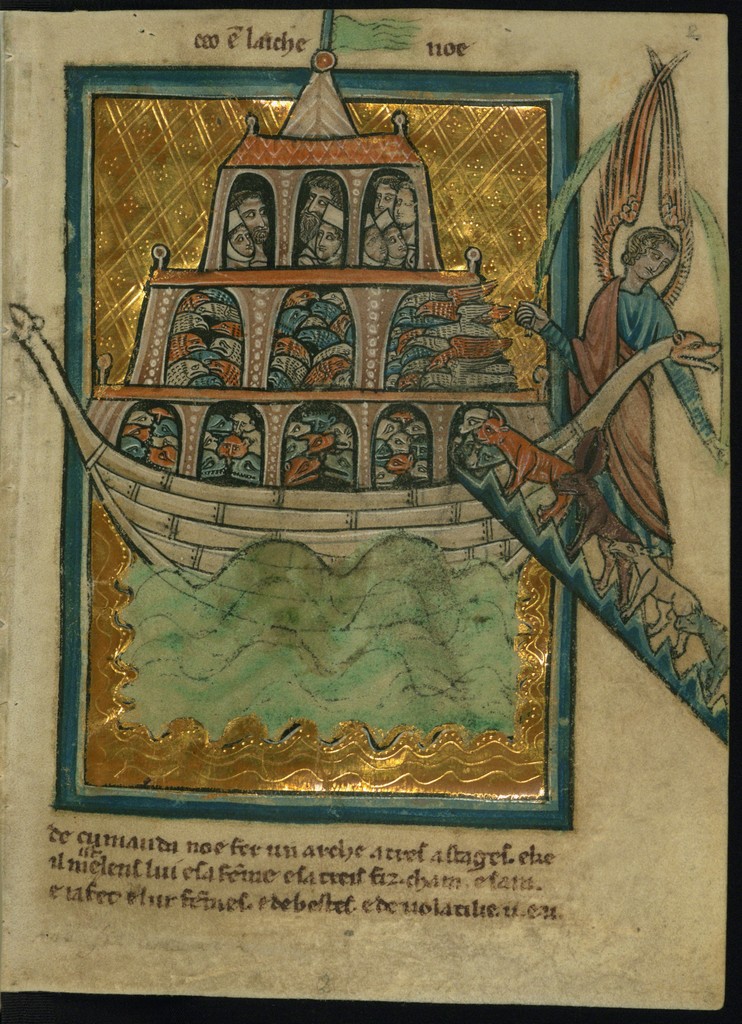 ceo ē larche noe
de cumanda noe fer un arche a treis astages. eke
il meïst enz lui e sa feme e sa treis fiz. cham. e sam.
e iafet e lur femes. e de bestes. e de uolatilie. ii. e ii.